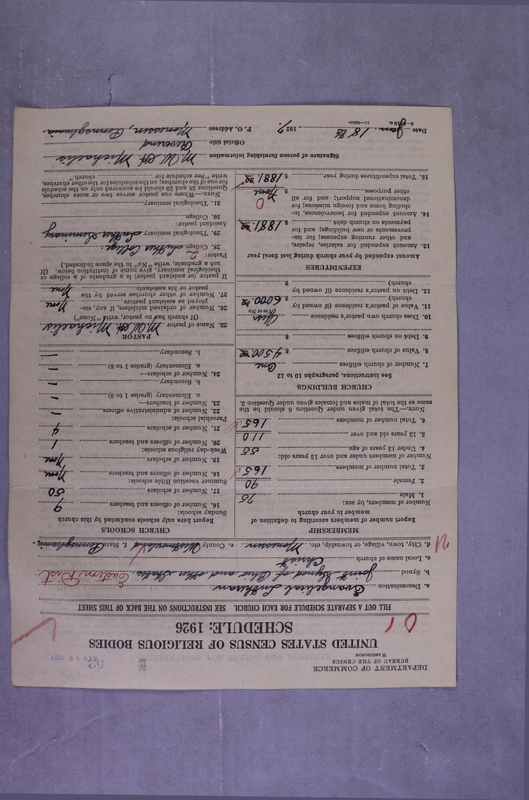 DEPARTMENT OF COMMERCE
BUREAU OF THE CENSUS
WASHINGTON
UNITED STATES CENSUS OF RELIGIOUS BODIES
SCHEDULE: 1926
FILL OUT A SEPARATE SCHEDULE FOR EACH CHURCH. SEE INSTRUCTIONS ON THE BACK OF THIS SHEET
a. Denomination Evangelical Lutheran
b. Synod Joint Synod of Ohio and other States Eastern Dist.
c. Local name of church Christ
d. City, town, village, or township, etc. Monessen e. County Westmoreland f. State Pennsylvania
MEMBERSHIP
Report number of members according to definition of member in your church
Number of members, by sex:
1. Male 75
2. Female 90
3. Total number of members 165
Number of members under and over 13 years old:
4. Under 13 years of age 55
5. 13 years old and over 110
6. Total number of members 165
NOTE.—The total given under Question 6 should be the same as the total of males and females given under Question 3.
CHURCH BUILDINGS
See instructions, paragraphs 10 to 12
7. Number of church edifices One
8. Value of church edifices $ 4500.00
9. Debt on church edifices $
10. Does church own pastor's residence
11. Value of pastor's residence (if owned by church) $ 6000.00
12. Debt on pastor's residence (if owned by church) $
EXPENDITURES
Amount expended by your church during last fiscal year
13. Amount expended for salaries, repairs, and other running expenses; for improvements or new buildings; and for payments on church debt $ 1881.
14. Amount expended for benevolences, including home and foreign missions; for denominational support; and for all other purposes $ None 0
15. Total expenditures during year $ 1881.
CHURCH SCHOOLS
Report here only schools conducted by this church
Sunday schools:
16. Number of officers and teachers 9
17. Number of scholars 50
Summer vacation Bible schools:
18. Number of officers and teachers None
19. Number of scholars None
Week-day religious schools:
20. Number of officers and teachers 1
21. Number of scholars 4
Parochial schools:
22. Number of administrative officers —
23. Number of teachers—
a. Elementary (grades 1 to 8) —
b. Secondary —
24. Number of scholars—
a. Elementary (grades 1 to 8) —
b. Secondary —
PASTOR
25. Name of pastor M. W. H. Michaelis
(If church has no pastor, write "None")
26. Number of ordained ministers, if any, employed as assistant pastors None
27. Number of other churches served by the pastor or his assistants None
If pastor (or assistant pastor) is a graduate of college or theological seminary, give name of institution below. (If not a graduate, write "No" in the space indicated.)
Pastor:
28. College
29. Theological seminary
Assistant pastor:
30. College
31. Theological seminary
Signature of person furnishing information M. W. H. Michaelis
Official title Reverend
Date Jan. 18th, 1927. P. O. Address Monessen, Pennsylvania